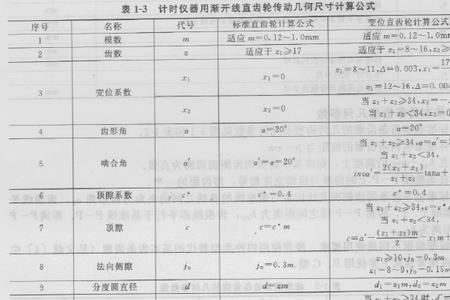 表 1-3 计时仪器用渐开线直齿轮传动几何尺寸计算公式
序号 名称 代号 标准直齿轮计算公式 变位直齿轮计算公式
1 模数 m 适应 m=0.12~1.0mm 适应 m=0.12~1.0mm
2 齿数 z 适应于 z₁≥17 适应于 z₁=8~16, z₂≥
3 变位系数 x₁ x₁=0 z₁=8~11,Δ=0.003,x₁=17
z₁=12~16,Δ=0.00
x₂ x₂=0 当 z₁+z₂≥34,x₂=-
当 z₁+z₂<34,x₂=
4 齿形角 α α=20° α=20°
5 啮合角 α′ α′=α=20° 当 z₁+z₂≥34,α=α′=
当 z₁+z₂<34,
invα′=2(x₁+x₂)/z₁+z₂ tanα+
6 顶隙系数 c* c*=0.4 c*=0.4
7 顶隙 c c=c*m 当 z₁+z₂≥34,c=
当 z₁+z₂<34,
c=a′-(z₁+z₂)m/2-x₁m+
8 法向侧隙 jₙ jₙ=0.3m z₁≥10,jₙ=0.3m
z₁=8~9,jₙ=0.15m
9 分度圆直径 d d=zm d₁=z₁m,d₂=z₂m